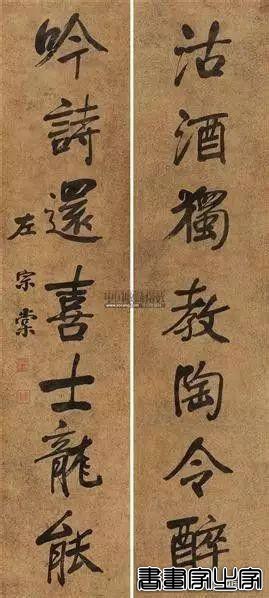 沽酒獨教陶令醉
吟詩還喜士龍能
左宗棠
書畫家必字